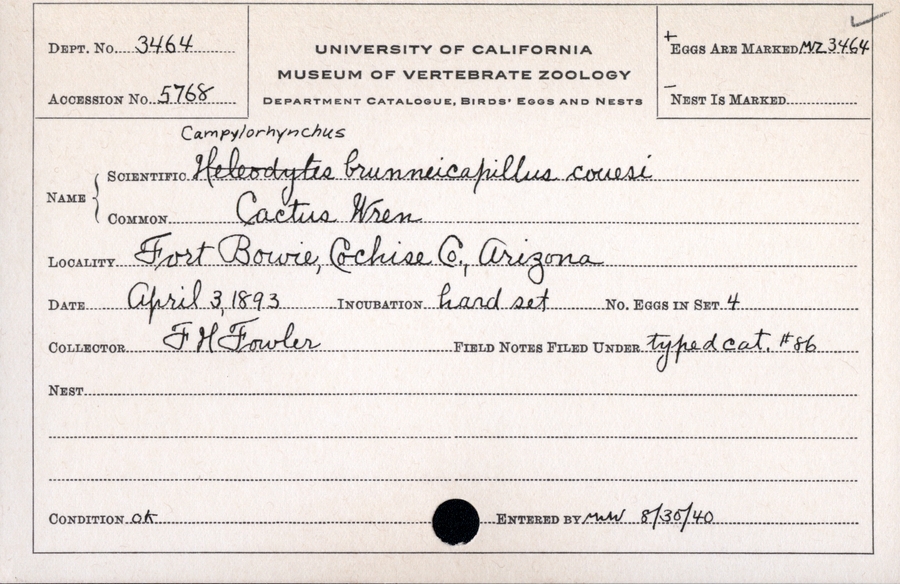 DEPT. No. 3464
ACCESSION No. 5768
UNIVERSITY OF CALIFORNIA
MUSEUM OF VERTEBRATE ZOOLOGY
DEPARTMENT CATALOGUE, BIRDS' EGGS AND NESTS
+ EGGS ARE MARKED MVZ 3464
– NEST IS MARKED
Campylorhynchus
NAME
SCIENTIFIC Heleodytes brunneicapillus couesi
COMMON Cactus Wren
LOCALITY Fort Bowie, Cochise Co., Arizona
DATE April 3, 1893 INCUBATION hard set NO. EGGS IN SET 4
COLLECTOR F H Fowler FIELD NOTES FILED UNDER typed cat. #86
NEST
CONDITION ok ENTERED BY 8/30/40